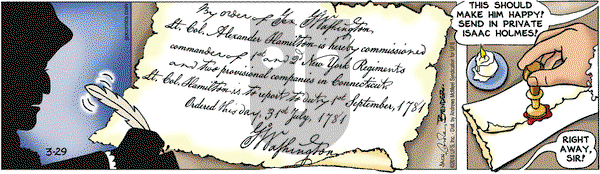 By order of Gen. GWashington,
Lt. Col. Alexander Hamilton is hereby commissioned
commander of 1st and 2d New York Regiments
and two provisional companies in Connecticut.
Lt. Col. Hamilton is to report to duty 1st September, 1781
Ordered this day, 31st July, 1781
GWashington
3-29
BENDER
THIS SHOULD
MAKE HIM HAPPY!
SEND IN PRIVATE
ISAAC HOLMES!
RIGHT
AWAY,
SIR!